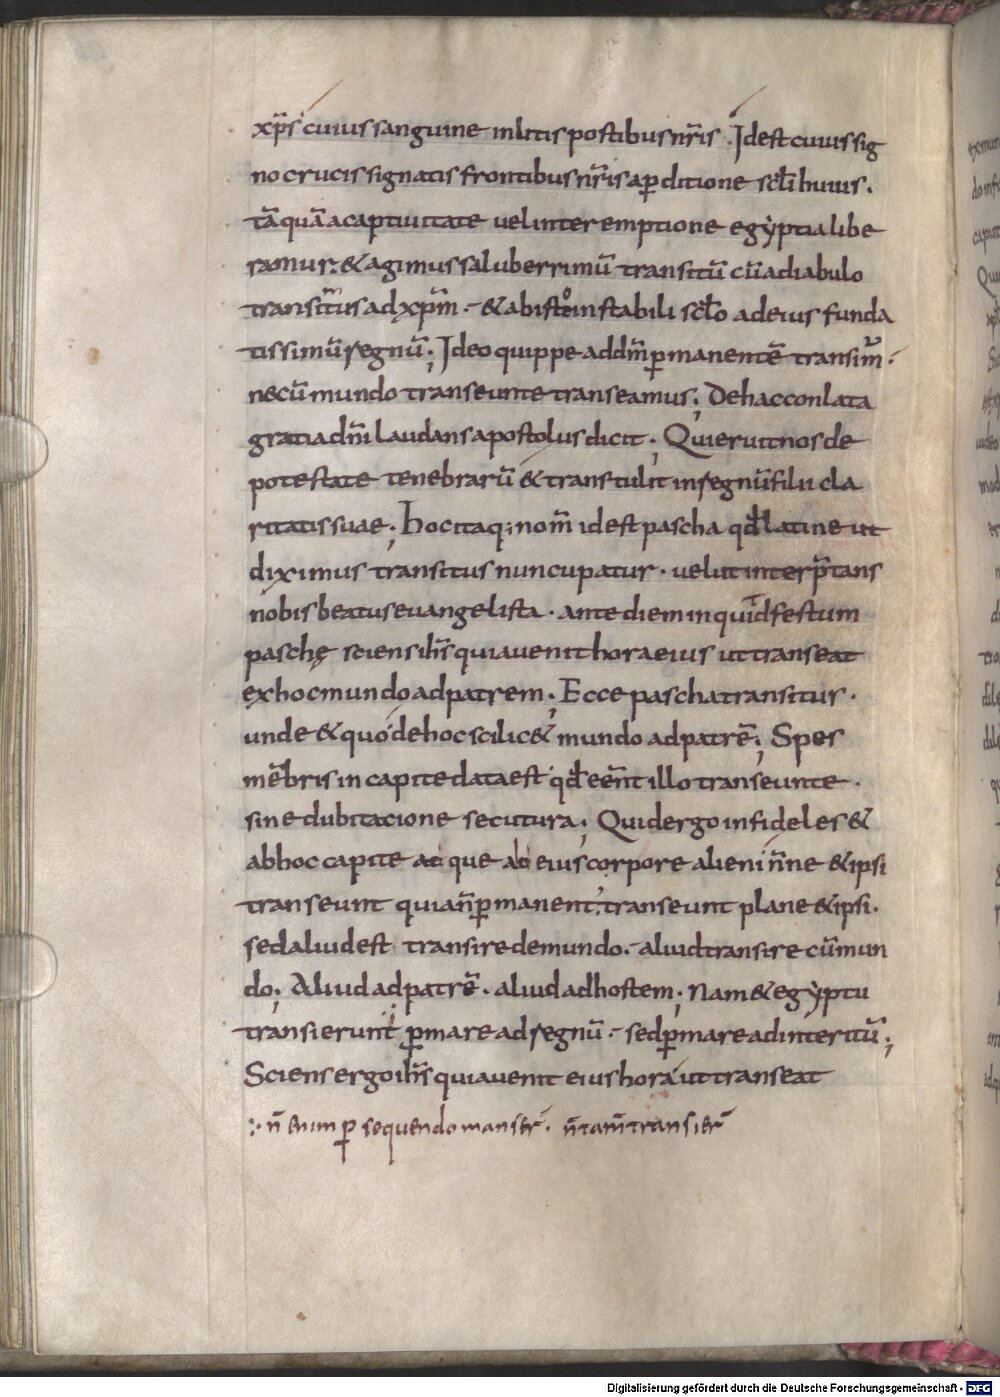 xp̅s cuius sanguine inlitis postibus nr̅is . Idest cuius sig
no crucis signatis frontibus nr̅is a ꝑditione sc̅li huius .
ta̅qua̅ a captiuitate uel interemptione egẏptia libe
ramur . & agimus saluberrimu̅ transitu̅ cu̅ a diabulo
transim̅us ad xp̅m . & ab isto instabili sc̅lo ad eius funda
tissimu̅ regnu̅ ; Ideo quippe ad dm̅ ꝑmanente̅ transim̅ .
ne cu̅ mundo transeunte transeamus ; De hac conlata
gratia dn̅i laudans apostolus dicit ; Qui eruit nos de
potestate tenebraru̅ & transtulit in regnu̅ filii cla
ritatis suae ; hoc itaq; nom̅ idest pascha qd̅ latine ut
diximus transitus nuncupatur . uelut interp̅tans
nobis beatus euangelista . ante diem inquid festum
paschę sciens ih̅s quia uenit hora eius ut transeat
ex hoc mundo ad patrem ; Ecce pascha transitur .
unde & quo de hoc scilic& mundo ad patre̅ ; Spes
me̅bris in capite data est qd̅ ee̅nt illo transeunte .
sine dubitacione secutura ; Quid ergo infideles &
ab hoc capite ac que ab eius corpore alieni n̅ne & ipsi
transeunt quia n̅ ꝑmanent ; transeunt plane & ipsi .
sed aliud est transire de mundo . aliud transire cu̅ mun
do ; Aliud ad patre̅ . aliud ad hostem ; Nam & egẏptii
transierunt ꝑ mare ad regnu̅ . sed ꝑ mare ad interitu̅ ;
Sciens ergo ih̅s quia uenit eius hora ut transeat
n̅ enim ꝑsequendo manser̅ . n̅ tam̅ transier̅
Digitalisierung gefördert durch die Deutsche Forschungsgemeinschaft - DFG